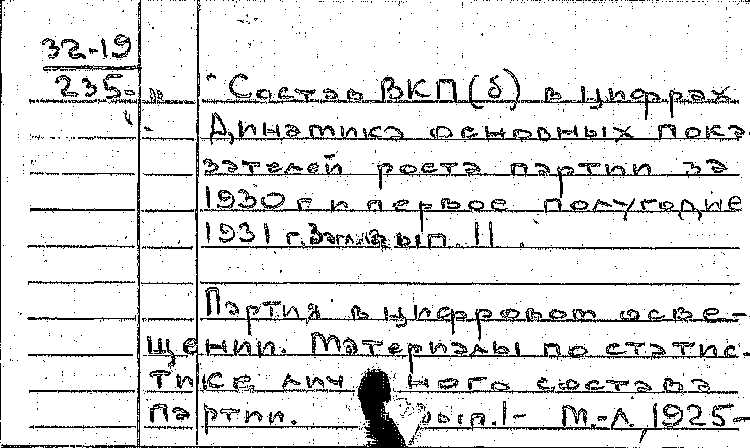 32-19
235-
"Состав ВКП(б) в цифрах
Динамика основных пока-
зателей роста партии за
1930 г и первое полугодие
1931 г. вып. 11.
Партия в цифровом осве-
щении. Материалы по статис-
тике личного состава
партии. Вып.1- М.-Л, 1925-